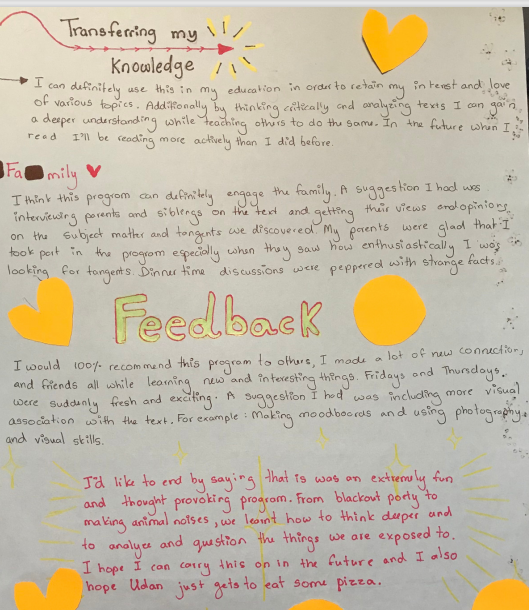 Transferring my
Knowledge
I can definitely use this in my education in order to retain my interest and love
of various topics. Additionally by thinking critically and analyzing texts I can gain
a deeper understanding while teaching others to do the same. In the future when I
read I'll be reading more actively than I did before.
Family
I think this program can definitely engage the family. A suggestion I had was
interviewing parents and siblings on the text and getting their views and opinions
on the subject matter and tangents we discovered. My parents were glad that I
took part in the program especially when they saw how enthusiastically I was
looking for tangents. Dinner time discussions were peppered with strange facts.
Feedback
I would 100% recommend this program to others, I made a lot of new connection,
and friends all while learning new and interesting things. Fridays and Thursdays.
were suddenly fresh and exciting. A suggestion I had was including more visual
association with the text. For example: Making moodboards and using photography
and visual skills.
I'd like to end by saying that is was an extremely fun
and thought provoking program. From blackout poetry to
making animal noises, we learnt how to think deeper and
to analyze and question the things we are exposed to.
I hope I can carry this on in the future and I also
hope Udan just gets to eat some pizza.